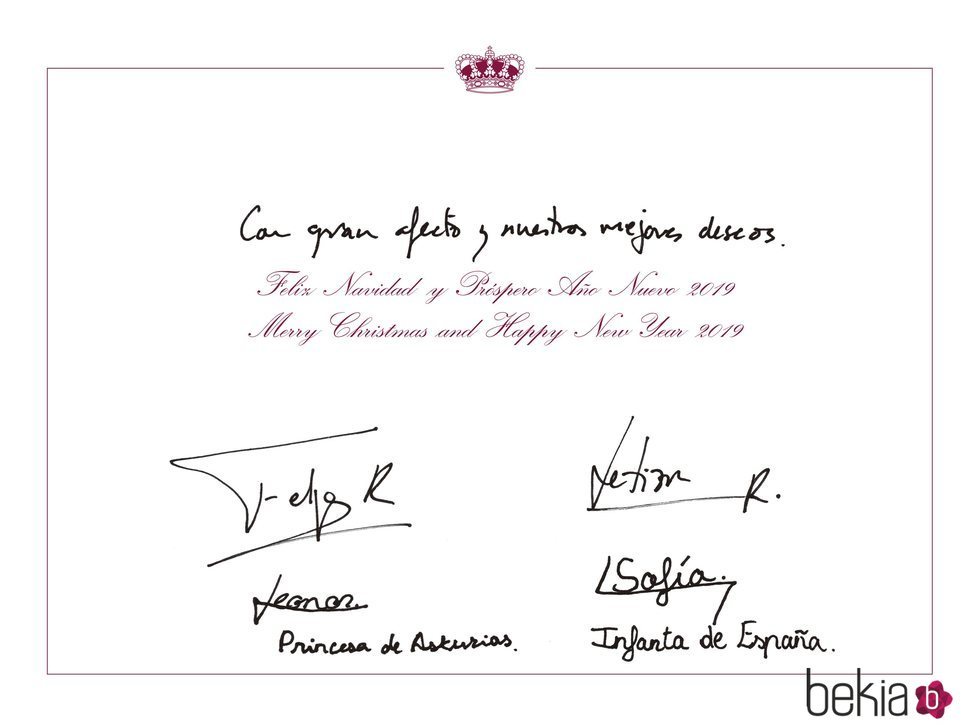 Con gran afecto y nuestros mejores deseos.
Feliz Navidad y Próspero Año Nuevo 2019
Merry Christmas and Happy New Year 2019
Felipe R
Letizia R.
Leonor.
Sofía.
Princesa de Asturias.
Infanta de España.
bekia b